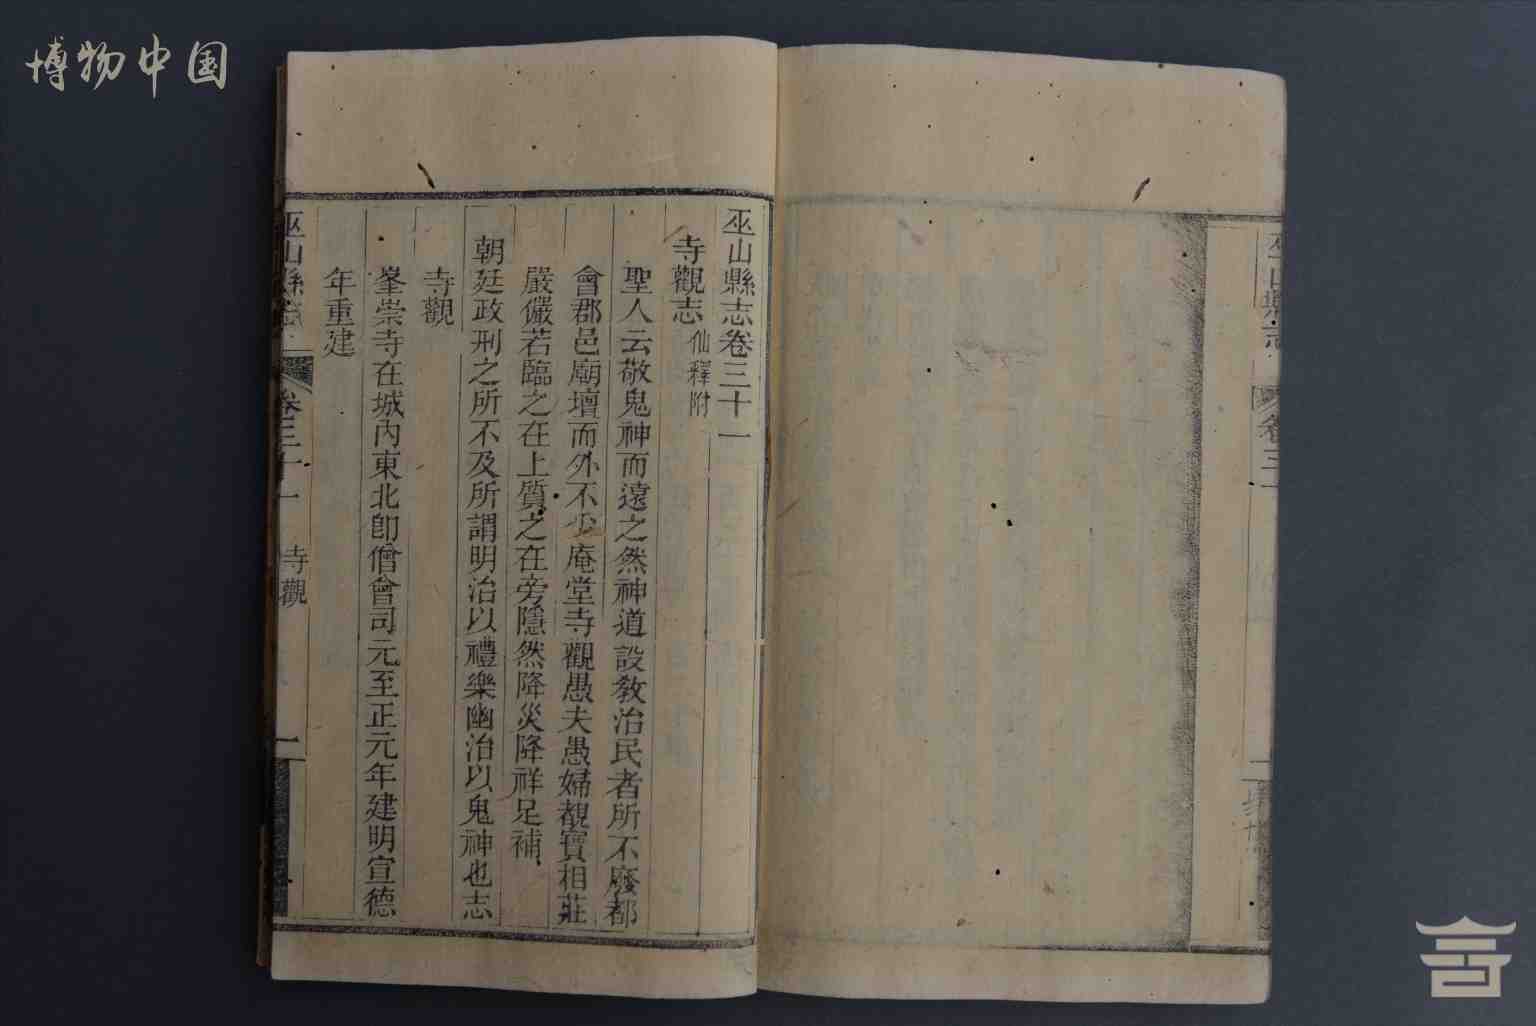 博物中国
巫山縣志
卷三十
巫山縣志卷三十一
寺觀志 仙釋附
聖人云敬鬼神而遠之然神道設敎治民者所不廢都
會郡邑廟壇而外不少庵堂寺觀愚夫愚婦覩寶相莊
嚴儼若臨之在上質之在旁隱然降災降祥足補
朝廷政刑之所不及所謂明治以禮樂幽治以鬼神也志
寺觀
峯崇寺在城內東北卽僧會司元至正元年建明宣德
年重建
巫山縣志
卷三十一
寺觀
一